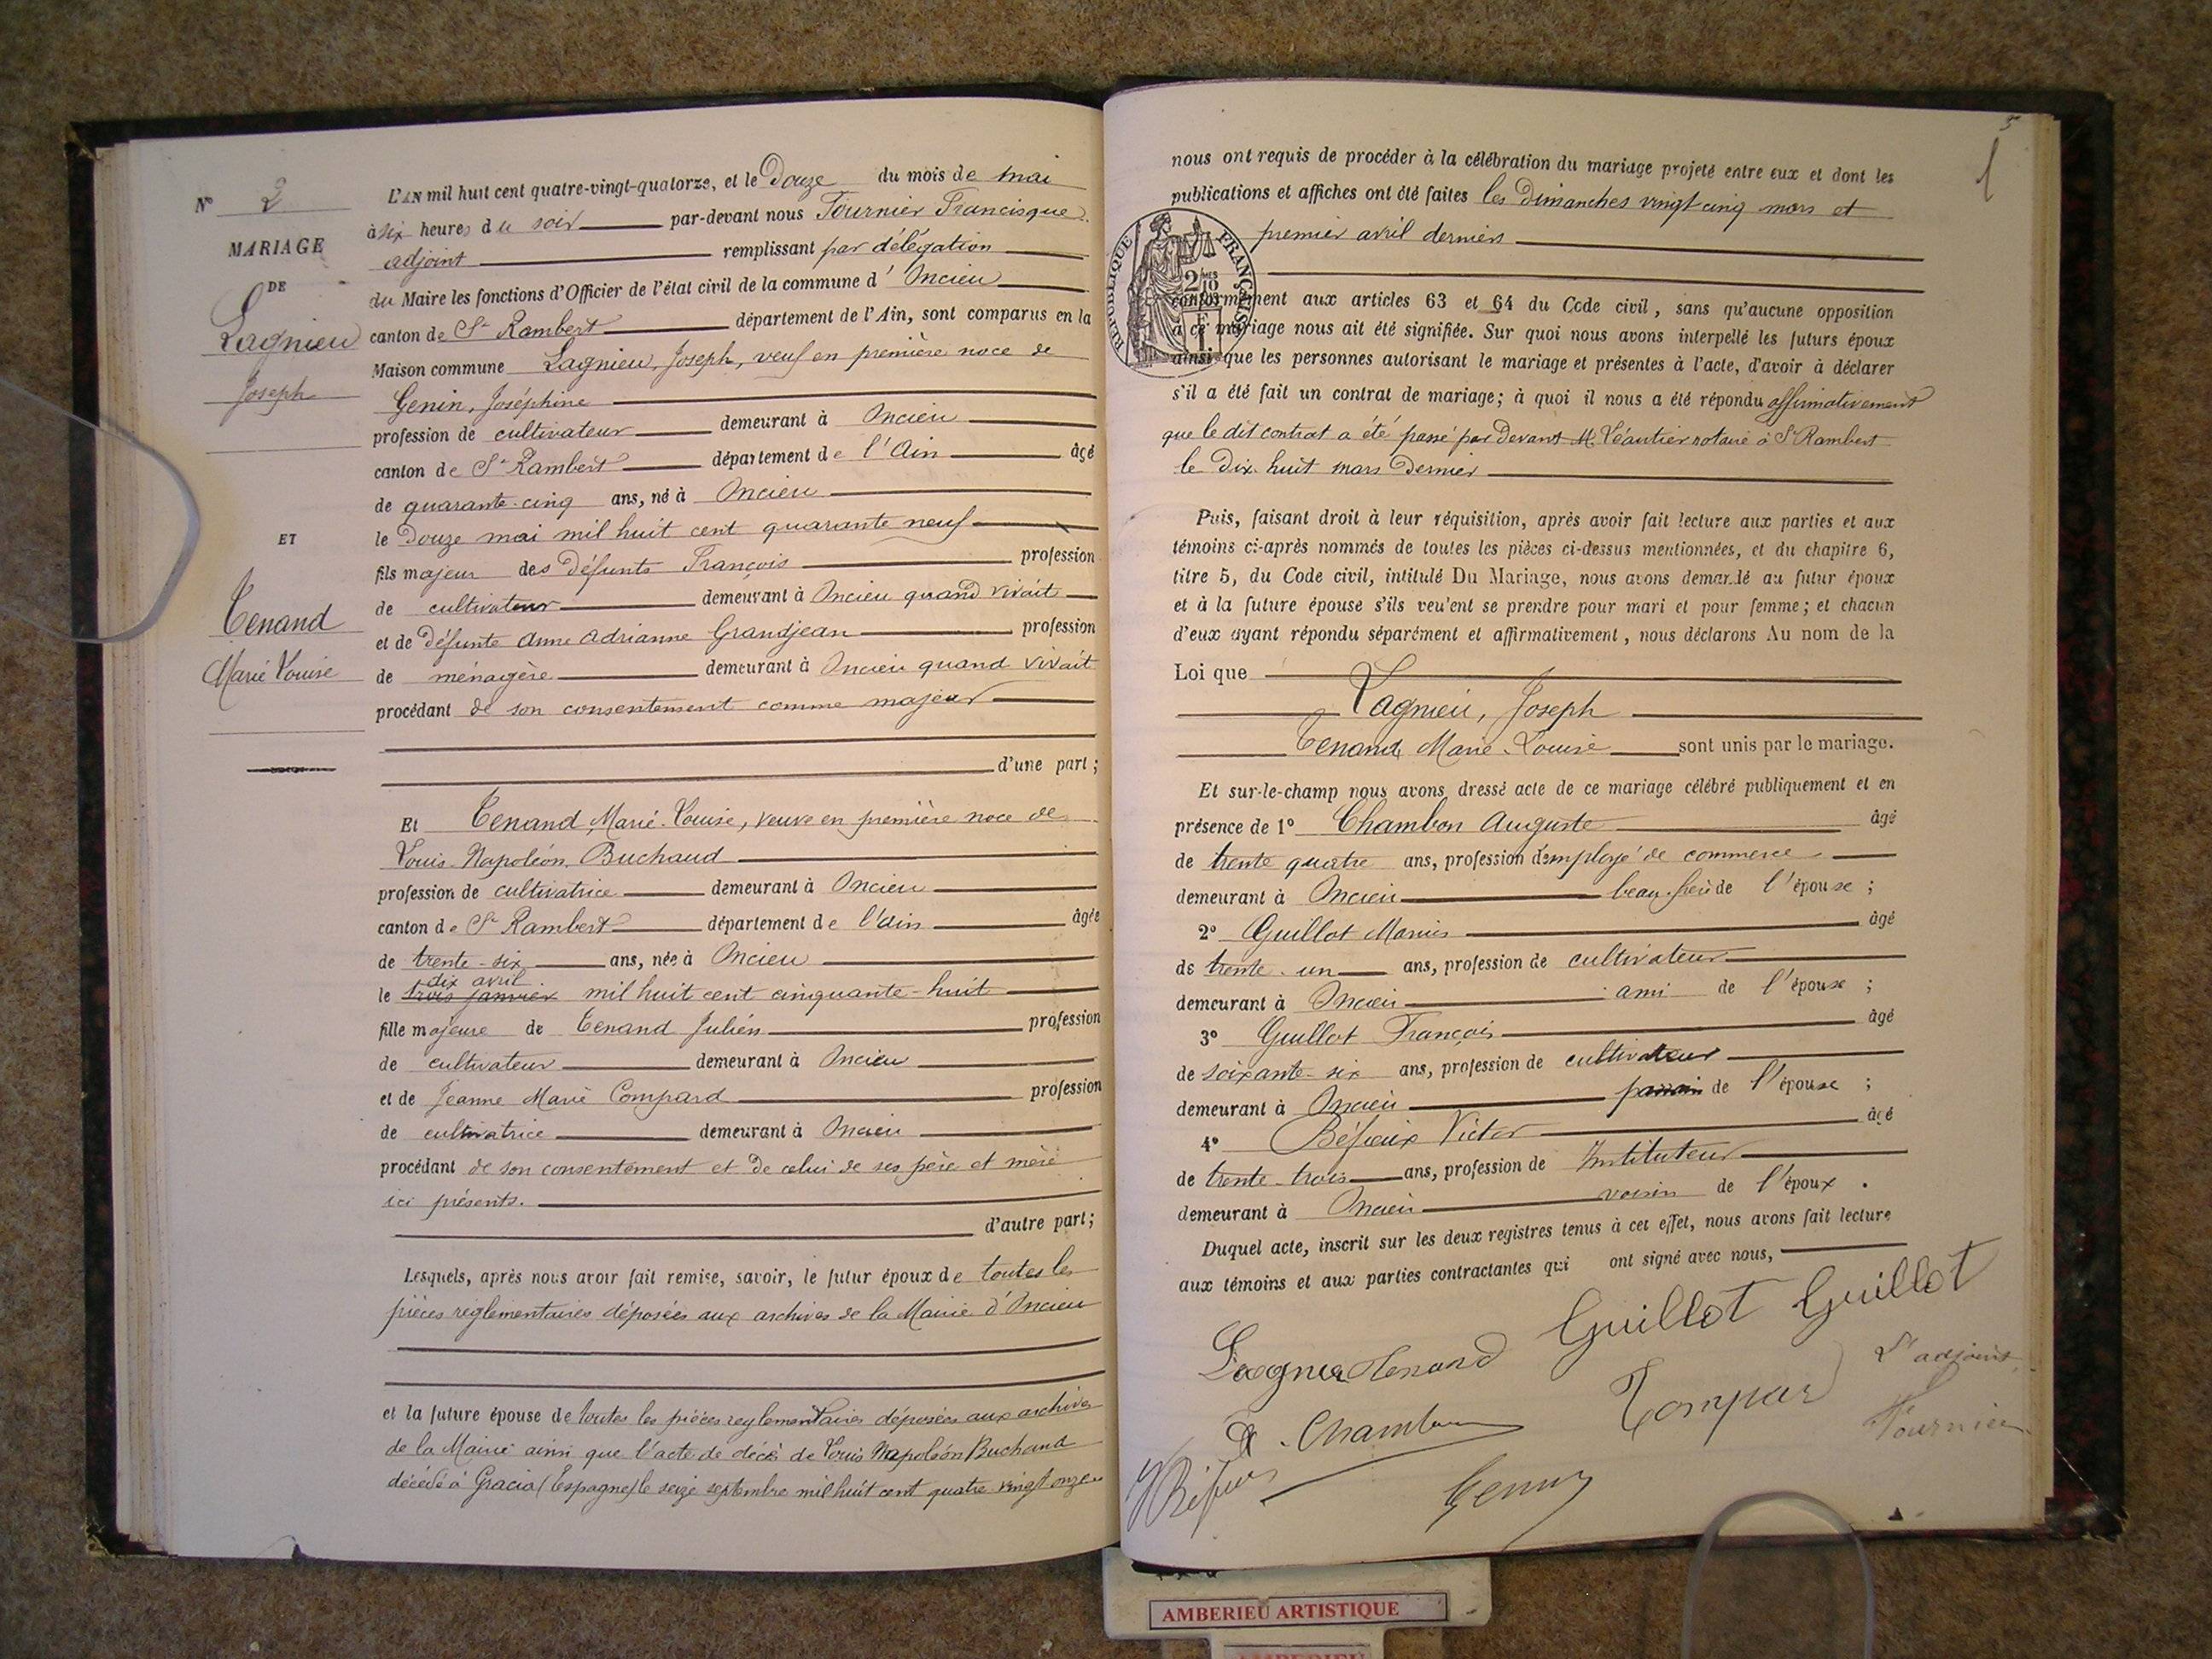 N° 2
MARIAGE
DE
Lagnieu
Joseph
ET
Tenand
Marie Louise
L'AN mil huit cent quatre-vingt-quatorze, et le Douze du mois de mai
à six heures du soir par-devant nous Fournier Francisque
adjoint remplissant par délégation
du Maire les fonctions d'Officier de l'état civil de la commune d' Oncieu
canton de St Rambert département de l'Ain, sont comparus en la
Maison commune Lagnieu, Joseph, veuf en première noce de
Genin, Joséphine
profession de cultivateur demeurant à Oncieu
canton de St Rambert département de l'Ain âgé
de quarante-cinq ans, né à Oncieu
le Douze mai mil huit cent quarante neuf
fils majeur des défunts François profession
de cultivateur demeurant à Oncieu quand vivait
et de défunte Anne Adrianne Grandjean profession
de ménagère demeurant à Oncieu quand vivait
procédant de son consentement comme majeur
d'une part;
Et Tenand, Marie-Louise, veuve en première noce de
Louis Napoléon Buchaud
profession de cultivatrice demeurant à Oncieu
canton de St Rambert département de l'Ain âgée
de trente-six ans, née à Oncieu
dix avril
le trois janvier mil huit cent cinquante-huit
fille majeure de Tenand Julien profession
de cultivateur demeurant à Oncieu
et de Jeanne Marie Compard profession
de cultivatrice demeurant à Oncieu
procédant de son consentement et de celui de ses père et mère
ici présents.
d'autre part;
Lesquels, après nous avoir fait remise, savoir, le futur époux de toutes les
pièces réglementaires déposées aux archives de la Mairie d'Oncieu
et la future épouse de toutes les pièces reglementaires déposées aux archives
de la Mairie ainsi que l'acte de décès de Louis Napoléon Buchaud
décédé à Gracia (Espagne) le seize septembre mil huit cent quatre vingt onze
5
1
nous ont requis de procéder à la célébration du mariage projeté entre eux et dont les
publications et affiches ont été faites les dimanches vingt cinq mars et
premier avril derniers
RÉPUBLIQUE FRANÇAISE
2 MES
10
conformément aux articles 63 et 64 du Code civil, sans qu'aucune opposition
à ce mariage nous ait été signifiée. Sur quoi nous avons interpellé les futurs époux
ainsi que les personnes autorisant le mariage et présentes à l'acte, d'avoir à déclarer
s'il a été fait un contrat de mariage; à quoi il nous a été répondu affirmativement
que le dit contrat a été passé par Devant M. Léautier notaire à St Rambert
le Dix-huit mars Dernier
Puis, faisant droit à leur réquisition, après avoir fait lecture aux parties et aux
témoins ci-après nommés de toutes les pièces ci-dessus mentionnées, et du chapitre 6,
titre 5, du Code civil, intitulé Du Mariage, nous avons demandé au futur époux
et à la future épouse s'ils veulent se prendre pour mari et pour femme; et chacun
d'eux ayant répondu séparément et affirmativement, nous déclarons Au nom de la
Loi que
Lagnieu, Joseph
Tenand Marie-Louise sont unis par le mariage.
Et sur-le-champ nous avons dressé acte de ce mariage célébré publiquement et en
présence de 1° Chambon Auguste âgé
de trente quatre ans, profession d'employé de commerce
demeurant à Oncieu beau-frère de l'épouse;
2° Guillot Marius âgé
de trente-un ans, profession de cultivateur
demeurant à Oncieu ami de l'épouse;
3° Guillot François âgé
de soixante-six ans, profession de cultivateur
demeurant à Oncieu de l'épouse;
4° Victor âgé
de trente-trois ans, profession de Instituteur
demeurant à Oncieu voisin de l'époux.
Duquel acte, inscrit sur les deux registres tenus à cet effet, nous avons fait lecture
aux témoins et aux parties contractantes qui ont signé avec nous,
Guillot Guillot
Lagnieu Tenand
L'adjoint
Compar
A. Chambon
Fournier
AMBERIEU ARTISTIQUE
AMBERIEU